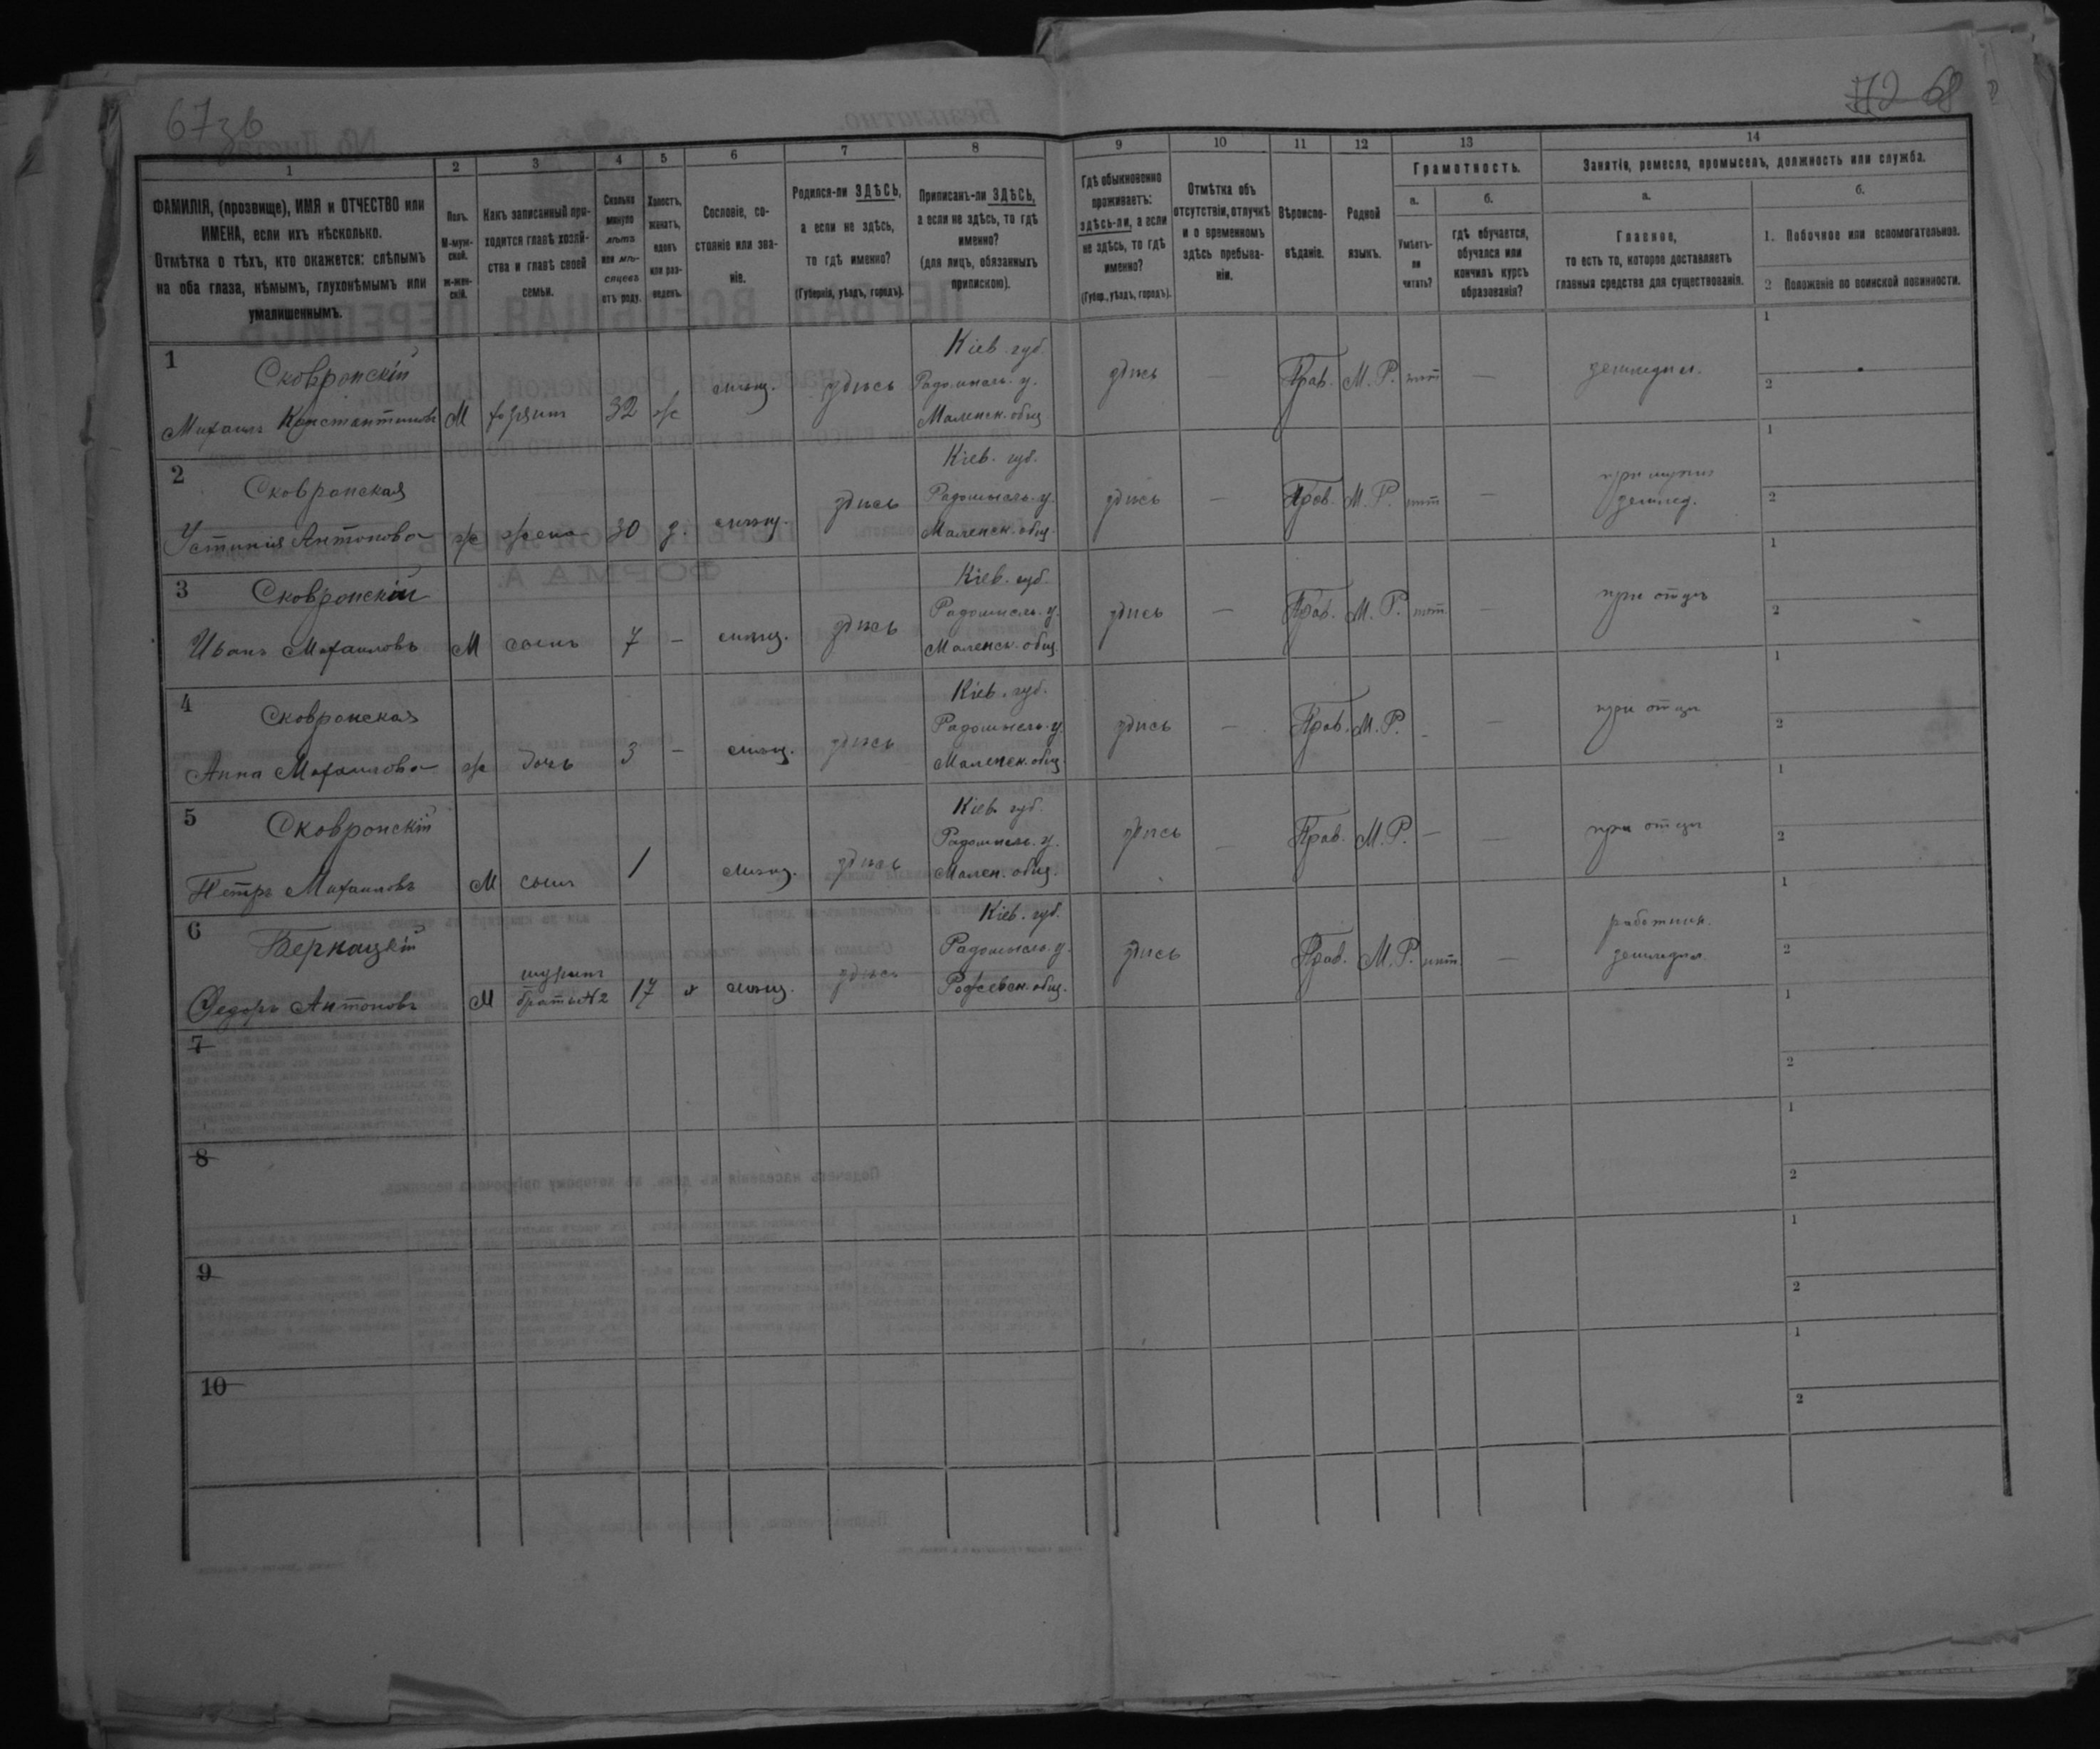 67зв
68
1 2 3 4 5 6 7 8 9 10 11 12 13 14
ФАМИЛІЯ, (прозвище), ИМЯ и ОТЧЕСТВО или
ИМЕНА, если ихъ нѣсколько.
Отмѣтка о тѣхъ, кто окажется: слѣпымъ
на оба глаза, нѣмымъ, глухонѣмымъ или
умалишеннымъ.
Полъ.
М-муж-
ской.
ж-жен-
скій.
Какъ записанный при-
ходится главѣ хозяй-
ства и главѣ своей
семьи.
Сколько
минуло
лѣтъ
или мѣ-
сяцевъ
отъ роду.
Холостъ,
женатъ,
вдовъ
или раз-
веденъ.
Сословіе, со-
стояніе или зва-
ніе.
Родился-ли ЗДѢСЬ,
а если не здѣсь,
то гдѣ именно?
(Губернія, уѣздъ, городъ).
Приписанъ-ли ЗДѢСЬ,
а если не здѣсь, то гдѣ
именно?
(для лицъ, обязанныхъ
припискою).
Гдѣ обыкновенно
проживаетъ:
здѣсь-ли, а если
не здѣсь, то гдѣ
именно?
(Губер., уѣздъ, городъ).
Отмѣтка объ
отсутствіи, отлучкѣ
и о временномъ
здѣсь пребыва-
ніи.
Вѣроиспо-
вѣданіе.
Родной
языкъ.
Грамотность.
а.
Умѣетъ-
ли
читать?
б.
гдѣ обучается,
обучался или
кончилъ курсъ
образованія?
Занятія, ремесло, промыселъ, должность или служба.
а.
Главное,
то есть то, которое доставляетъ
главныя средства для существованія.
б.
1. Побочное или вспомогательное.
2 Положеніе по воинской повинности.
1 Сковронскій
Михаилъ Константиновъ М хозяинъ 32 ж мѣщ. здѣсь
Кіев. губ.
Радомысль. у.
Маленск. общ.
здѣсь — Прав. М. Р. нѣт — земледѣл.
1
2
2 Сковронская
Устинія Антонова ж жена 30 з. мѣщ. здѣсь
Кіев. губ.
Радомысль. у.
Маленск. общ.
здѣсь — Прав. М. Р. нѣт —
при мужѣ
землед.
1
2
3 Сковронскій
Иванъ Михаиловъ М сынъ 7 — мѣщ. здѣсь
Кіев. губ.
Радомысль. у.
Маленск. общ.
здѣсь — Прав. М. Р. нѣт — при отцѣ
1
2
4 Сковронская
Анна Михаилова ж дочь 3 — мѣщ. здѣсь
Кіев. губ.
Радомысль. у.
Маленск. общ.
здѣсь — Прав. М. Р. — — при отцѣ
1
2
5 Сковронскій
Петръ Михаиловъ М сынъ 1 мѣщ. здѣсь
Кіев. губ.
Радомысль. у.
Мален. общ.
здѣсь — Прав. М. Р. — — при отцѣ
1
2
6
Федоръ Антоновъ М
шуринъ
братъ №2
17 х мѣщ. здѣсь
Кіев. губ.
Радомысль. у.
общ.
здѣсь Прав. М. Р. нѣт. —
работник.
земледѣл.
1
2
7
1
2
8
1
2
9
1
2
10
1
2